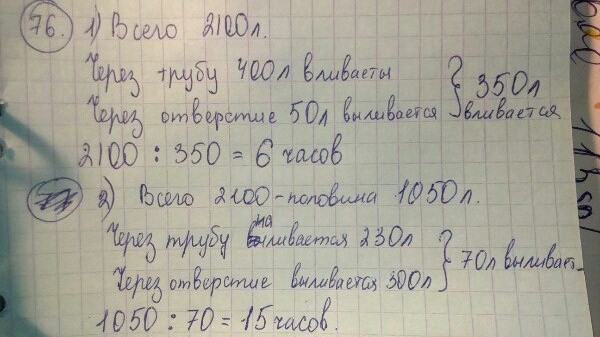 76. 1) Всего 2100л.
Через трубу 400л вливаеты
Через отверстие 50л выливается } 350л вливается
2100 : 350 = 6 часов
2) Всего 2100-половина 1050л.
Через трубу наливается 230л
Через отверстие выливается 300л } 70л выливает-
1050 : 70 = 15 часов.